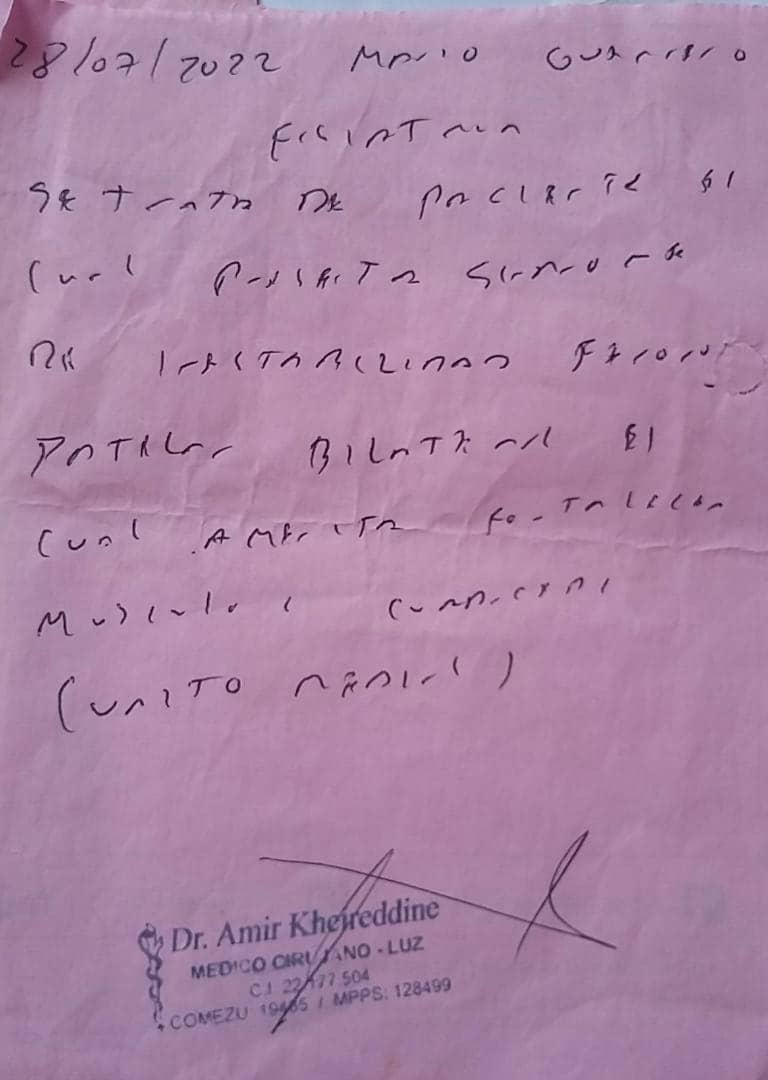 28/07/2022 Mario Guerrero
Fisiatria
Se trata de paciente el
cual presenta sindrome
de inestabilidad Femoro
Patelar Bilateral el
cual Amerita Fortalecer
Musculos cuadriceps
(vasto medial)
Dr. Amir Kheireddine
MEDICO CIRUJANO - LUZ
C.I 22.177.504
COMEZU / MPPS: 128499